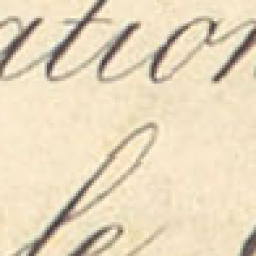 ation
le